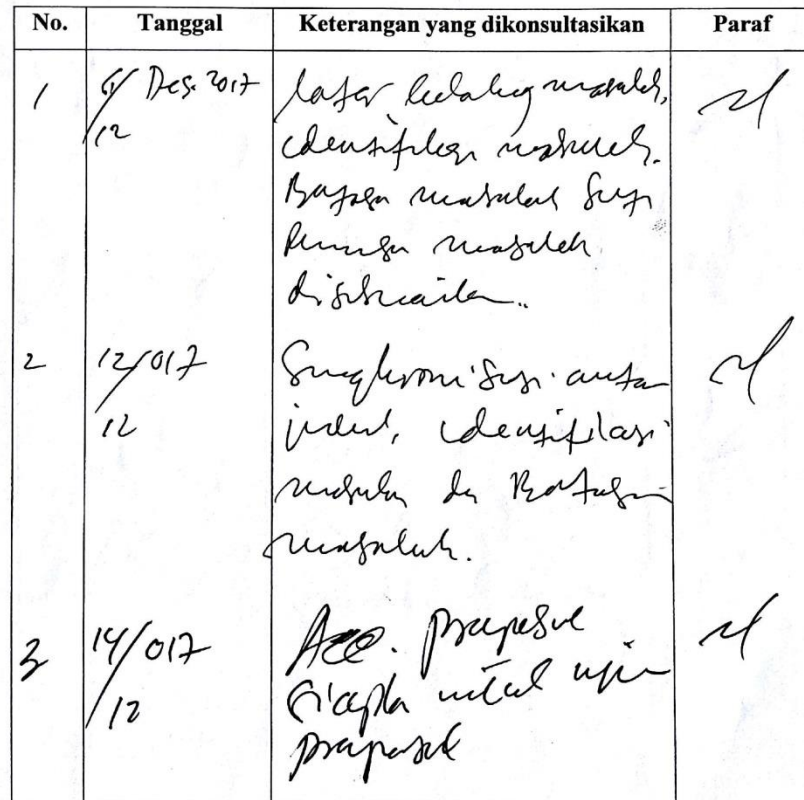 No. Tanggal Keterangan yang dikonsultasikan Paraf
1 Des. 2017 latar belakang masalah,
12 identifikasi masalah.
Batasan masalah
masalah
disesuaikan..
2 12/017 Singkronisasi antar
12 judul, identifikasi
masalah dan Batasan
masalah.
3 14/017 Acc. proposal
12 siapkan untuk ujian
proposal